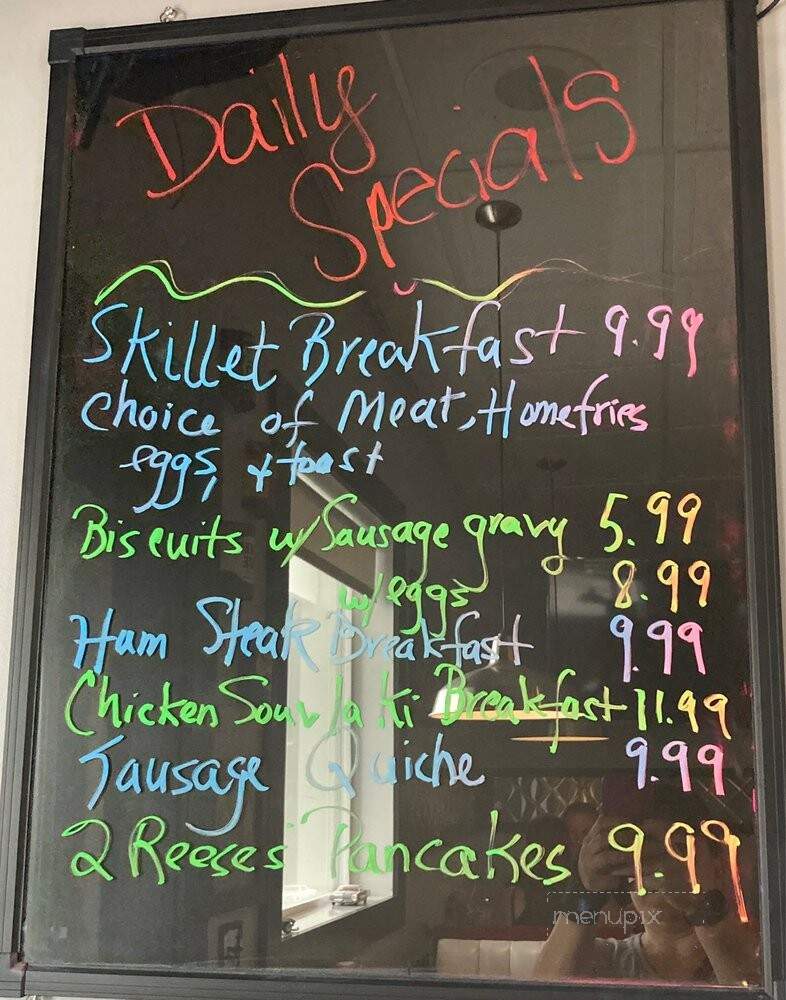 Daily
Specials
Skillet Breakfast 9.99
choice of Meat, Homefries
eggs, + toast
Biscuits w/ Sausage gravy 5.99
w/ eggs 8.99
Ham Steak Breakfast 9.99
Chicken Souvlaki Breakfast 11.99
Sausage Quiche 9.99
2 Reeses' Pancakes 9.99
menupix